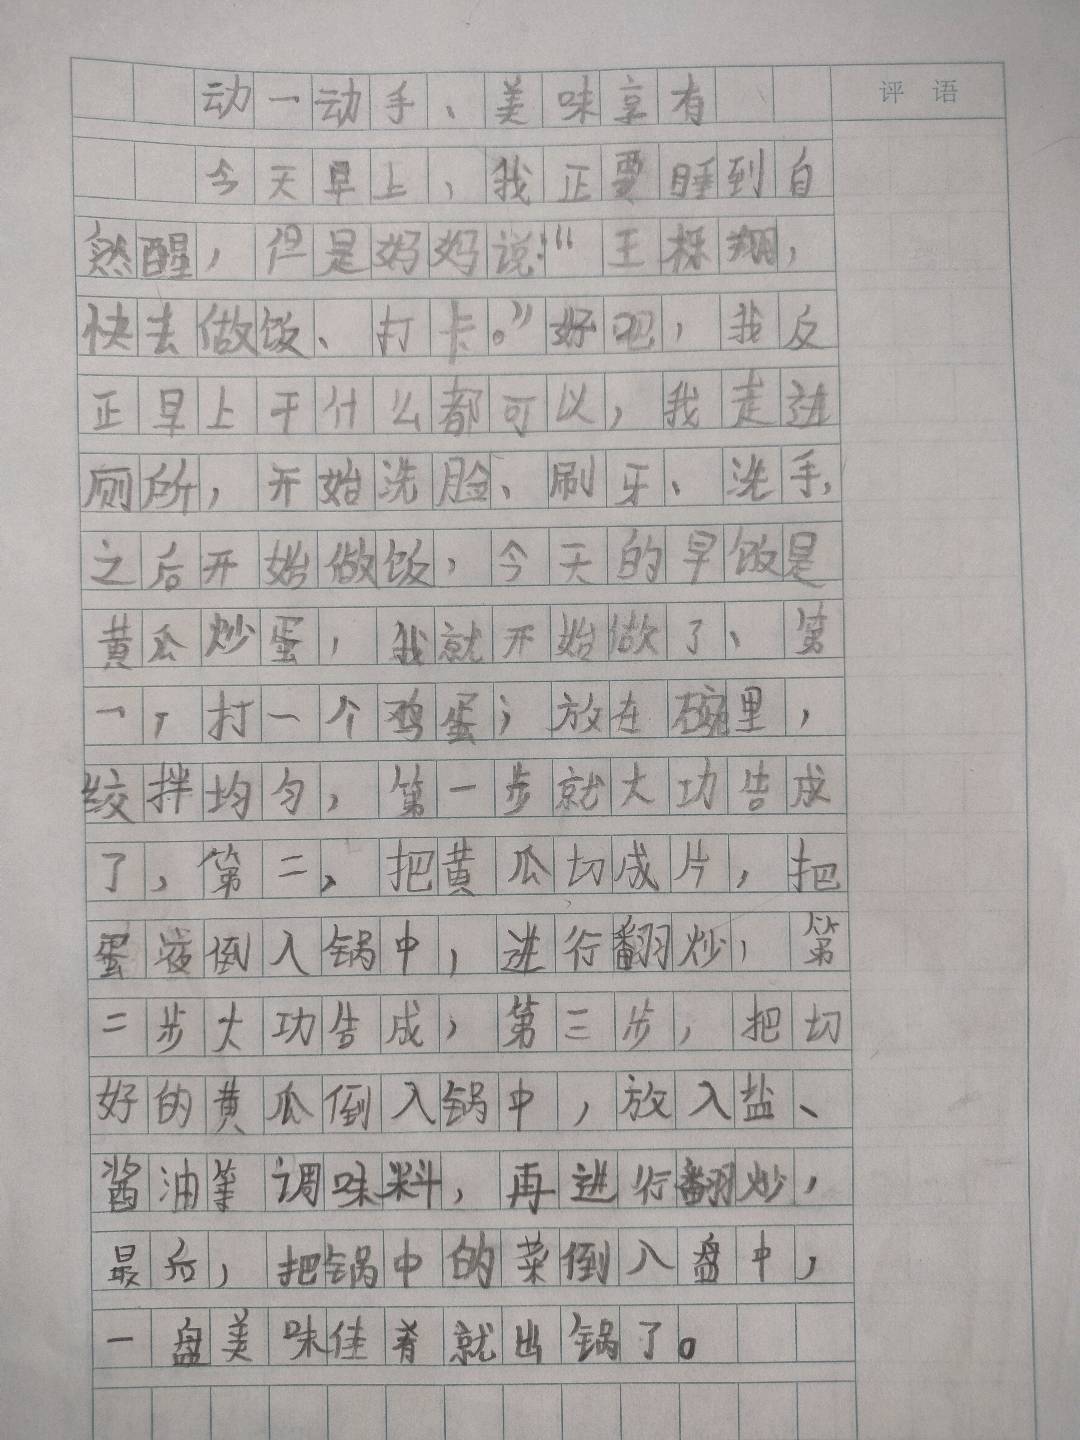 动一动手、美味享有
评语
今天早上，我正要睡到自
然醒，但是妈妈说：“王栎翔，
快去做饭、打卡。”好吧，我反
正早上干什么都可以，我走进
厕所，开始洗脸、刷牙、洗手，
之后开始做饭，今天的早饭是
黄瓜炒蛋，我就开始做了、第
一，打一个鸡蛋；放在碗里，
绞拌均匀，第一步就大功告成
了，第二，把黄瓜切成片，把
蛋液倒入锅中，进行翻炒，第
二步大功告成，第三步，把切
好的黄瓜倒入锅中，放入盐、
酱油等调味料，再进行翻炒，
最后，把锅中的菜倒入盘中，
一盘美味佳肴就出锅了。